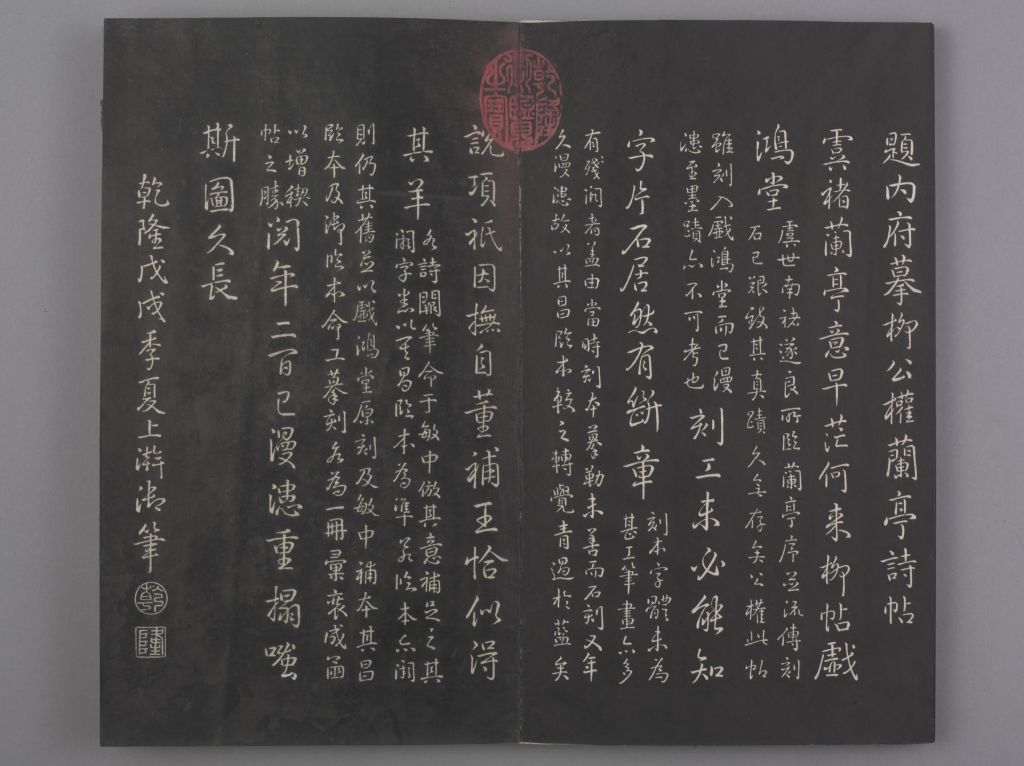 題內府摹柳公權蘭亭詩帖
虞褚蘭亭意早茫何来柳帖戲
鴻堂
虞世南褚遂良所臨蘭亭序並流傳刻
石已艱致其真蹟久無存矣公權此帖
雖刻入戲鴻堂而已漫
漶至墨蹟亦不可考也
刻工未必能知
字片石居然有斷章
刻本字體未為
甚工筆畫亦多
有殘闕者蓋由當時刻本摹勒未善而石刻又年
久漫漶故以其昌臨本較之轉覺青過於藍矣
乾隆御覽之寶
說項祇因撫自董補王恰似得
其羊
各詩闕筆命于敏中倣其意補足之其
闕字悉以其昌臨本為準若臨本亦闕
則仍其舊並以戲鴻堂原刻及敏中補本其昌
臨本及御臨本命工摹刻各為一冊彙裘成函
以增稧
帖之勝
閱年二百已漫漶重搨
斯圖久長
乾隆戊戌季夏上澣御筆
乾
隆